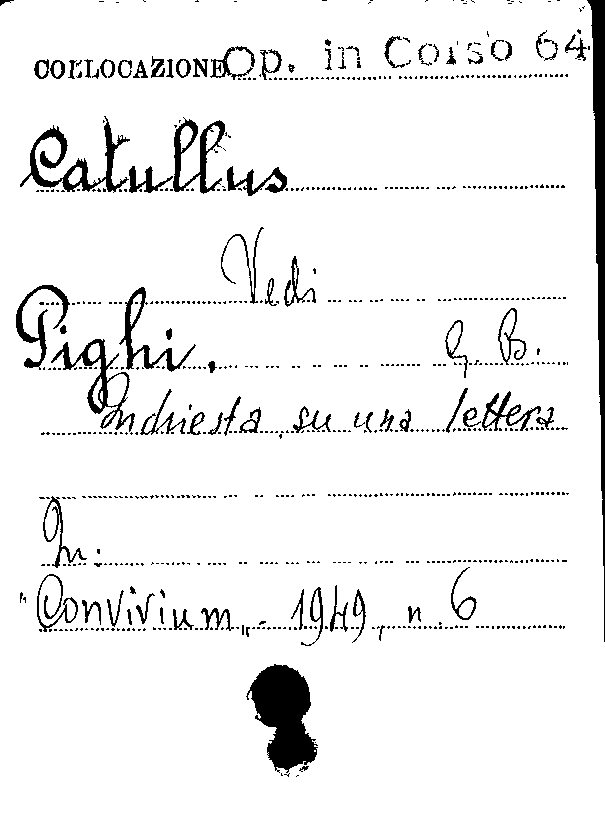 COLLOCAZIONE Op. in Corso 64
Catullus
Vedi
Pighi, G. B.
Inchiesta su una lettera
In:
"Convivium„. 1949, n. 6